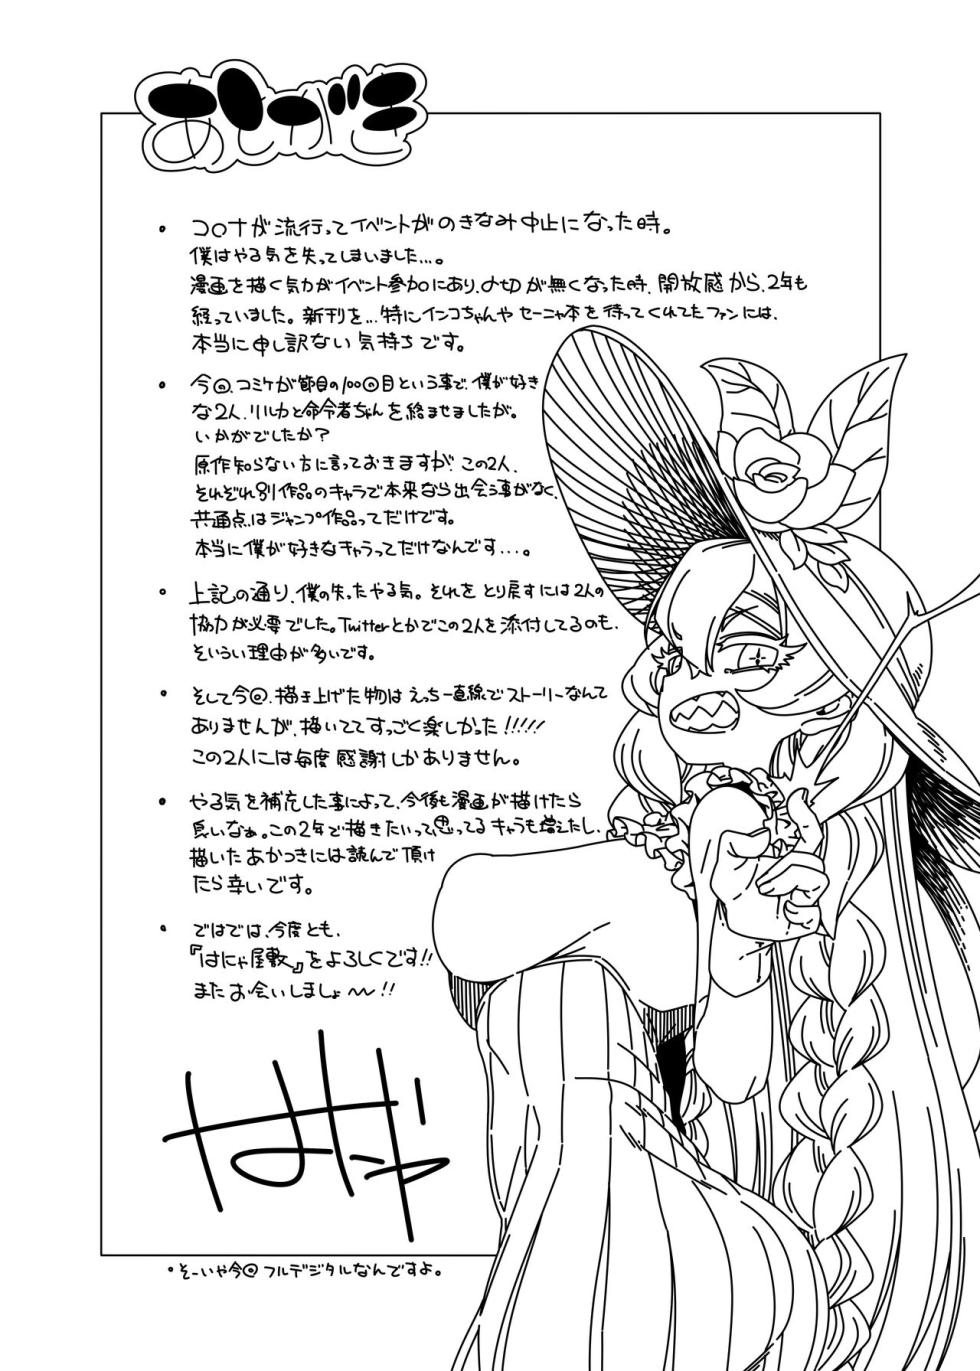 あとがき
・コロナが流行ってイベントがのきなみ中止になった時。
僕はやる気を失ってしまいました…。
漫画を描く気力がイベント参加にあり、〆切が無くなった時、開放感から、2年も
経っていました。新刊を…特にインコちゃんや セーニャ本を待ってくれてたファンには、
本当に申し訳ない気持ちです。
・今回、コミケが節目の100回目という事で、僕が好き
な2人、リルカと命令者ちゃんを絡ませましたが。
いかがでしたか?
原作知らない方に言っておきますが、この2人、
それぞれ別作品のキャラで本来なら出会う事がなく、
共通点はジャンプ作品ってだけです。
本当に僕が好きなキャラってだけなんです…。
・上記の通り、僕の失ったやる気。それをとり戻すには2人の
協力が必要でした。Twitterとかでこの2人を添付してるのも、
そういうい理由が多いです。
・そして今回、描き上げた物はえっち一直線でストーリーなんて
ありませんが、描いててすっごく楽しかった!!!!!
この2人には毎度感謝しかありません。
・やる気を補充した事によって、今後も漫画が描けたら
良いなぁ。この2年で描きたいって思ってるキャラも増えたし、
描いたあかつきには読んで頂け
たら幸いです。
・ではでは、今度とも、
『はにゃ屋敷』をよろしくです!!
またお会いしましょ〜!!
はにゃ
・そーいや今回フルデジタルなんですよ。